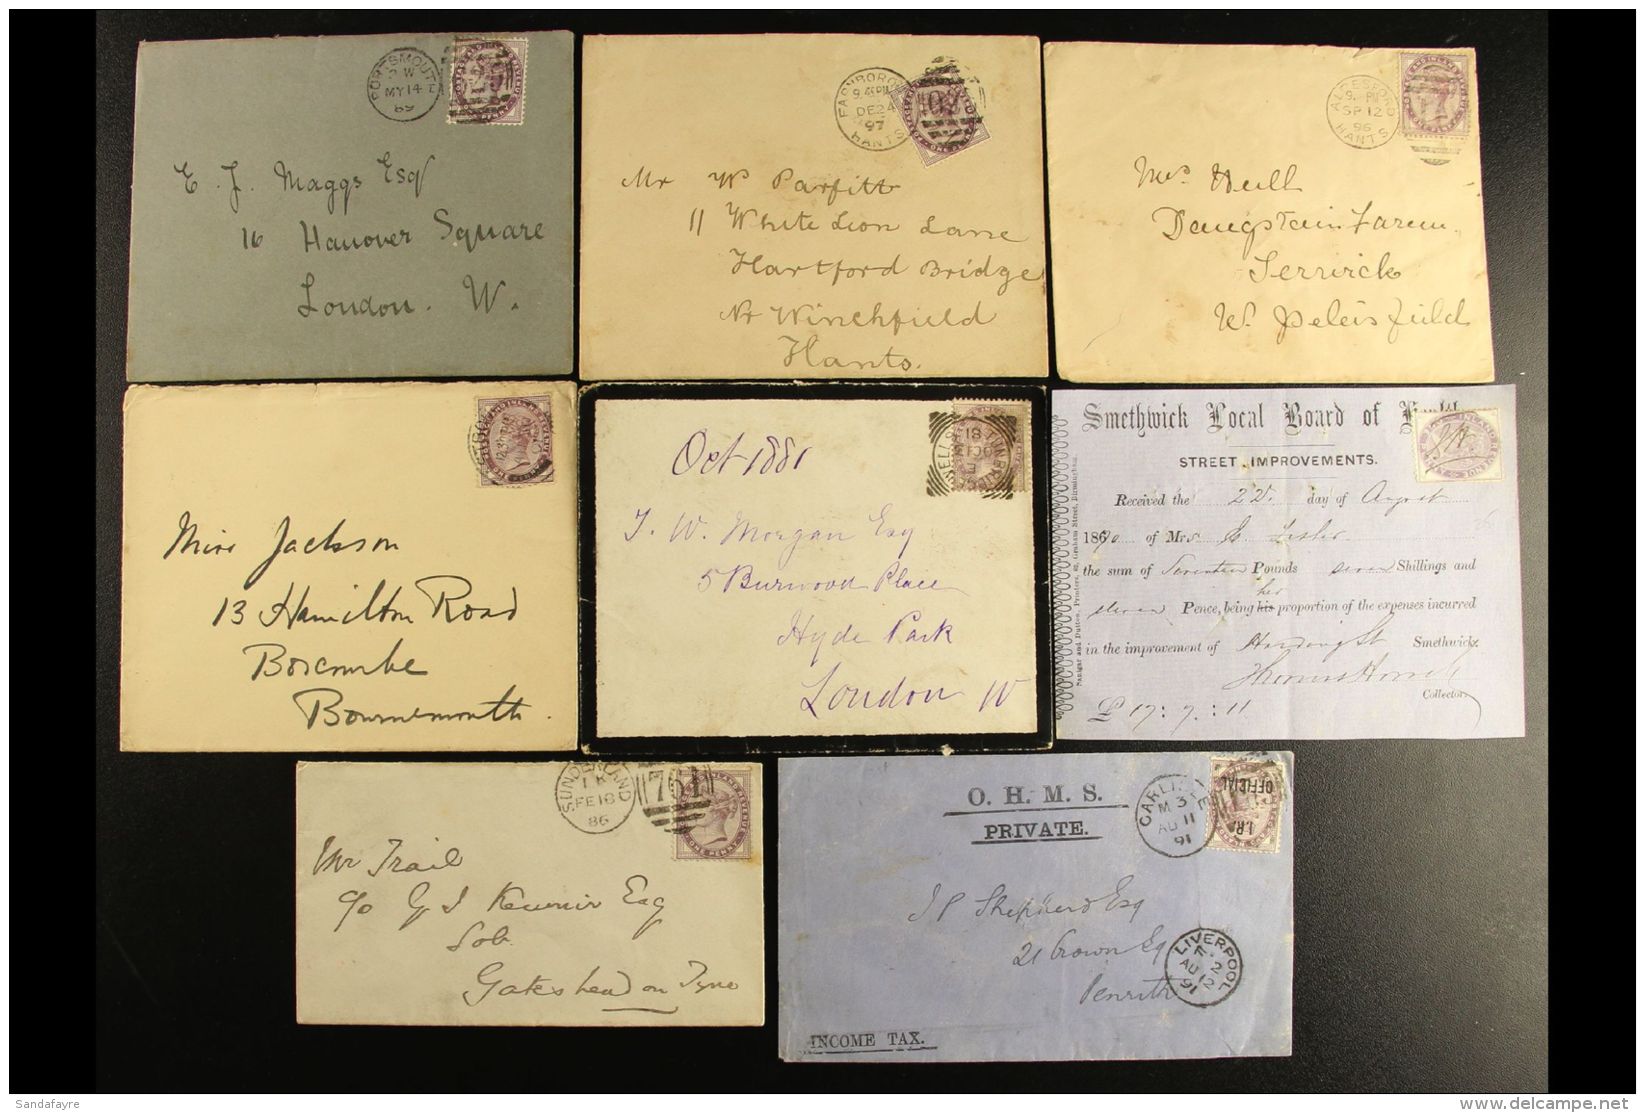 PORTSMOUTH
MY 14
89
E. J. Maggs Esq
16 Hanover Square
London. W.
FARNBORO
DE 24
97
HANTS
Mr W Parfitt
11 White Lion Lane
Hartford Bridge
Nr Winchfield
Hants.
ALRESFORD
SP 12
96
HANTS
Mrs Hull
Farm
W. Petersfield
Miss Jackson
13 Hamilton Road
Boscombe
Bournemouth.
Oct 1881
T. W. Morgan Esq
5 Burwood Place
Hyde Park
London W
Smethwick Local Board of
STREET IMPROVEMENTS.
Received the 22 day of August
1890 of Mrs Lester
the sum of Seventeen Pounds seven Shillings and
her
eleven Pence, being his proportion of the expenses incurred
in the improvement of Harding St Smethwick.
Thomas
Collector
£17:7:11
SUNDERLAND
1 K
FE 18
86
761
ONE PENNY
Mr Trail
c/o G J Esq
Gateshead on Tyne
O. H. M. S.
PRIVATE.
CARLISLE
M 3
AU 11
91
I.R.
OFFICIAL
J P Shepherd Esq
21 Crown Sq
Penrith
LIVERPOOL
AU 12
91
INCOME TAX.
Sandafayre
delcampe.net